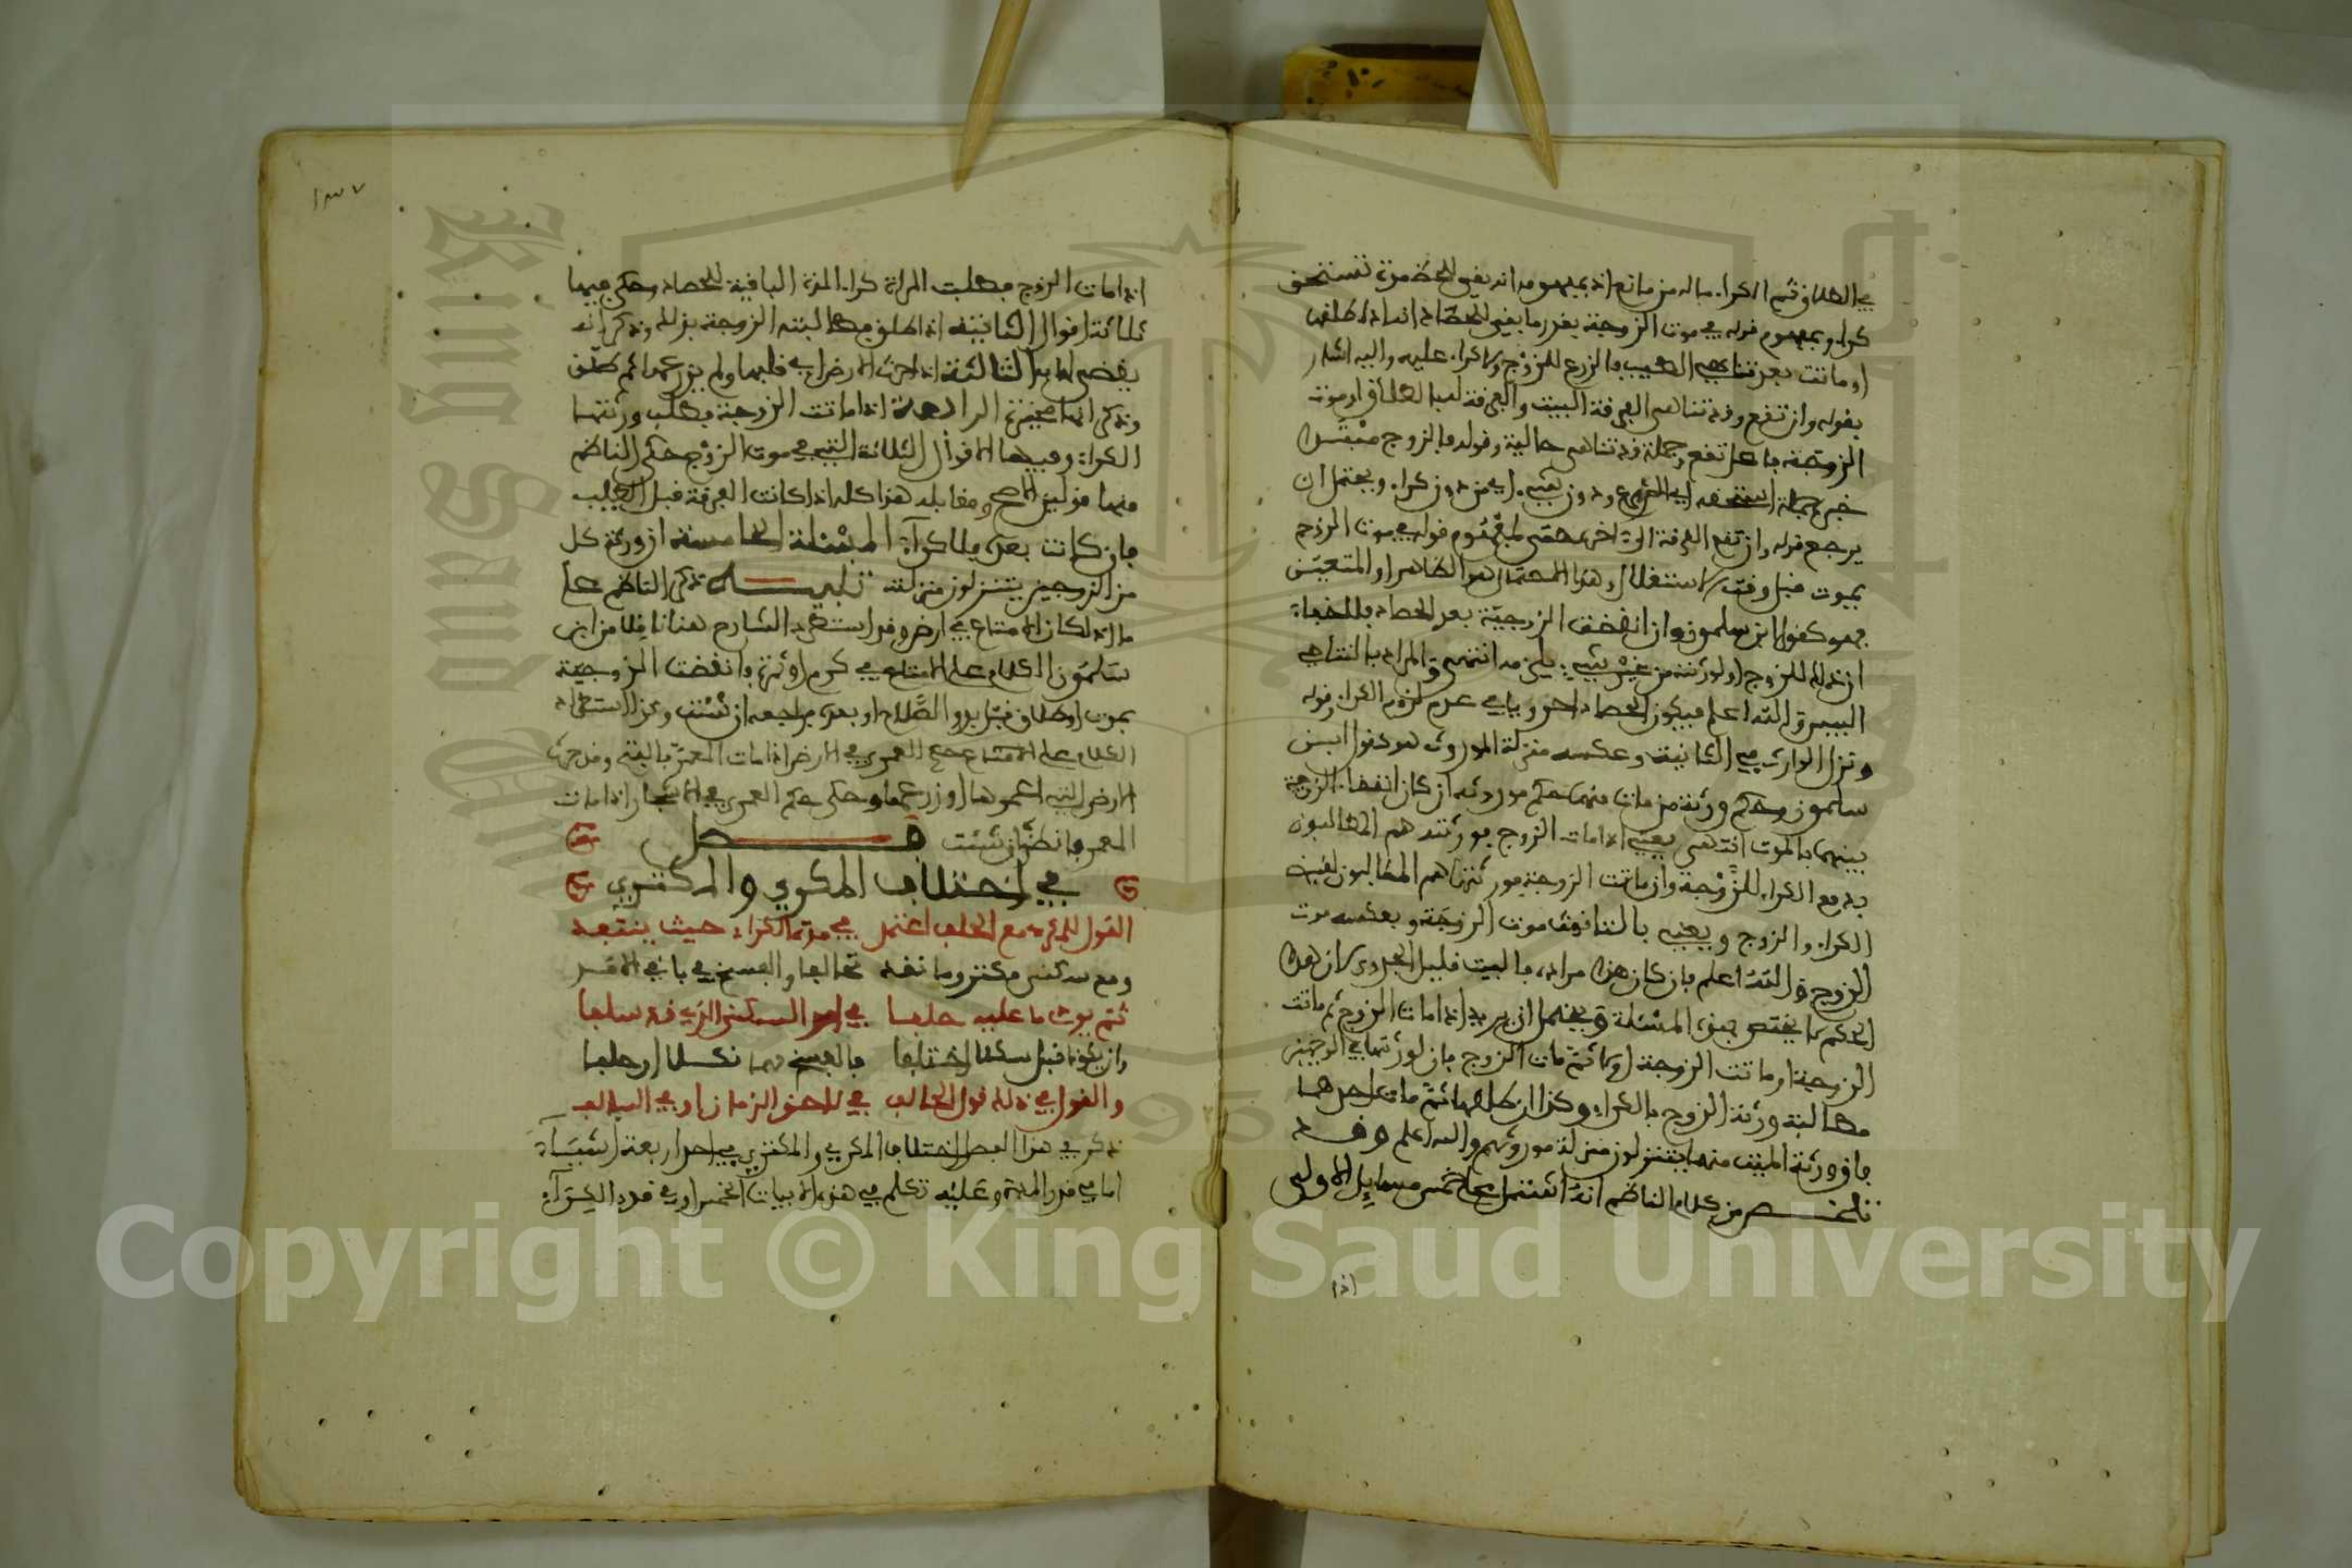 في الطلاق ثم الكراء ماله من مانع انه بمفهومه انه بقي للحظ مدة تستحق
كراء وبمفهوم قوله في موت الزوجة بقدر ما بقي للحصاد انه اذا طلقها
او ماتت بعد تناهي الطيب فالزرع للزوج ولا كراء عليه واليه اشار
بقوله وان تقع وقد تناهى الفرقة البيت والفرقة لعبا لطلاق او موت
الزوجة فاعل تقع وجملة قد تناهى حالية وقوله فالزوج مبتدا
خبره جملة استحقه اي الزرع ودون شيء اي من دون كراء ويحتمل ان
يرجع قوله وان تقع الفرقة الى اخره حتى لمفهوم قوله في موت الزوج
يموت قبل وقت الاستغلال وهذا الاحتمال هو الظاهر او المتعين
فهو كقول ابن سلمون وان انقضت الزوجية بعد الحصاد فللخفاء
ان ذلك للزوج او لورثته من غير شيء يلزمه انتهى والمراد بالتناهي
اليبس والله اعلم فيكون الحصاد احروي في عدم لزوم الكراء قوله
ونزل الوارث في التانيث وعكسه منزلة الموروث هو كقول ابن
سلمون وحكم ورثة من مات منهما حكم موروثه ان كان انقضاء الزوجية
بينهما بالموت انتهى يعني اذا مات الزوج فورثته هم المطالبون
بدفع الكراء للزوجة وان ماتت الزوجة فورثتها هم المطالبون بقبض
الكراء والزوج ويعني بالتانيث موت الزوجة وبعكسه موت
الزوج والله اعلم فان كان هذا مراده فالبيت قليل الجدوى لان هذا
الحكم لا يختص بهذه المسئلة ويحتمل ان يريد اذا مات الزوج ثم ماتت
الزوجة او ماتت الزوجة اولا ثم مات الزوج فان لورثتها في الوجهين
مطالبة ورثة الزوج بالكراء وكذا ان طلقها ثم مات احدهما
فان ورثة الميت منهما يتنزلون منزلة موروثهم والله اعلم وقد
تلخص من كلام الناظم انه اشتمل على خمس مسايل الاولى
اذا
١٣٧
اذا مات الزوج فطلبت المراة كراء المدة الباقية للحصاد وحكى فيها
ثلاثة اقوال الثانية اذا طلق فطالبته الزوجة بذلك وذكر انه
يقضى لها به الثالثة اذا حرث الارض اي قلبها ولم يزرعها ثم طلق
وذكر انها مخيرة الرابعة اذا ماتت الزوجة فطلب ورثتها
الكراء وفيها الاقوال الثلاثة التي في موت الزوج حكى الناظم
منها قولين الاصح ومقابله هذا كله اذا كانت الفرقة قبل الطيب
فان كانت بعده فلا كراء المسئلة الخامسة ان ورثة كل
من الزوجين يتنزلون منزلته تنبيه ذكر الناظم حكم
ما اذا كان الامتاع في ارض وقد استطرد الشارح هنا ناقلا من ابن
سلمون الكلام على الامتاع في كرم او ثمرة وانقضت الزوجية
بموت او طلاق قبل بدو الصلاح او بعده فراجعه ان شئت وعن الاستطراد
الكلام على الامتاع حكم العمرى في الارض اذا مات المعمر بالفتح وقد حرث
الارض التي اعمرها او زرعها وحكى حكم العمرى في الاشجار اذا مات
المعمر فانظره ان شئت فصل
في اختلاف المكري والمكتري
القول للمكر مع الحلف اعتمل في مدة الكراء حيث ينتقد
ومع سكنى مكتر وما نقد تحالفا والفسخ في باقي الامد
ثم يودى ما عليه حلفا في امد السكنى الذي قد سلفا
وان يكونا قبل سكنى اختلفا فالفسخ مهما نكلا او حلفا
والقول في ذلك قول الحالف في لاحق الزمان او في السالف
ذكر في هذا الفصل اختلاف المكري والمكتري في احد اربعة اشياء
اما في قدر المدة وعليه تكلم في هذه الابيات الخمس او في قدر الكراء
Copyright © King Saud University